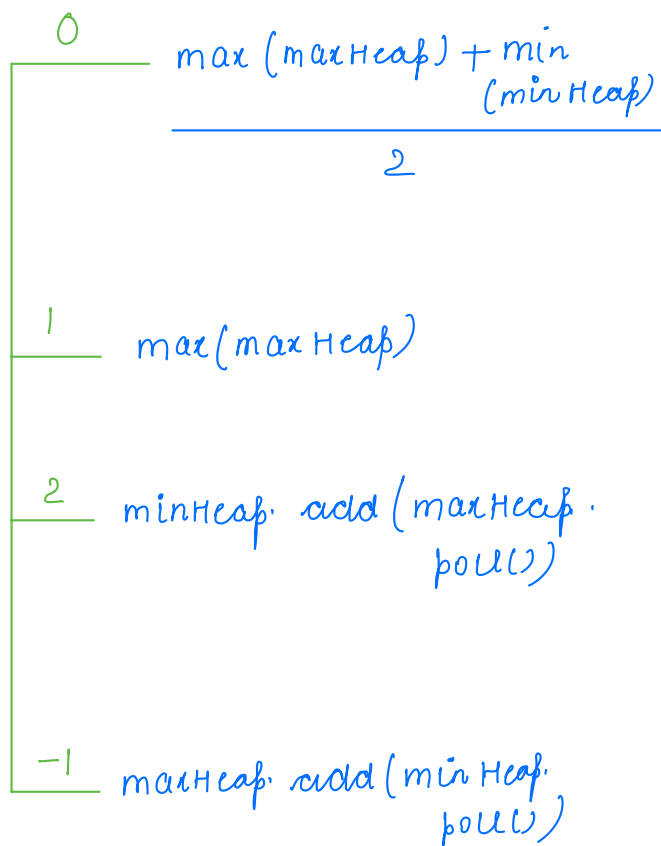 0
max (maxHeap) + min
(minHeap)
2
1
max(maxHeap)
2
minHeap. add (maxHeap.
poll())
-1
maxHeap. add (minHeap.
poll())